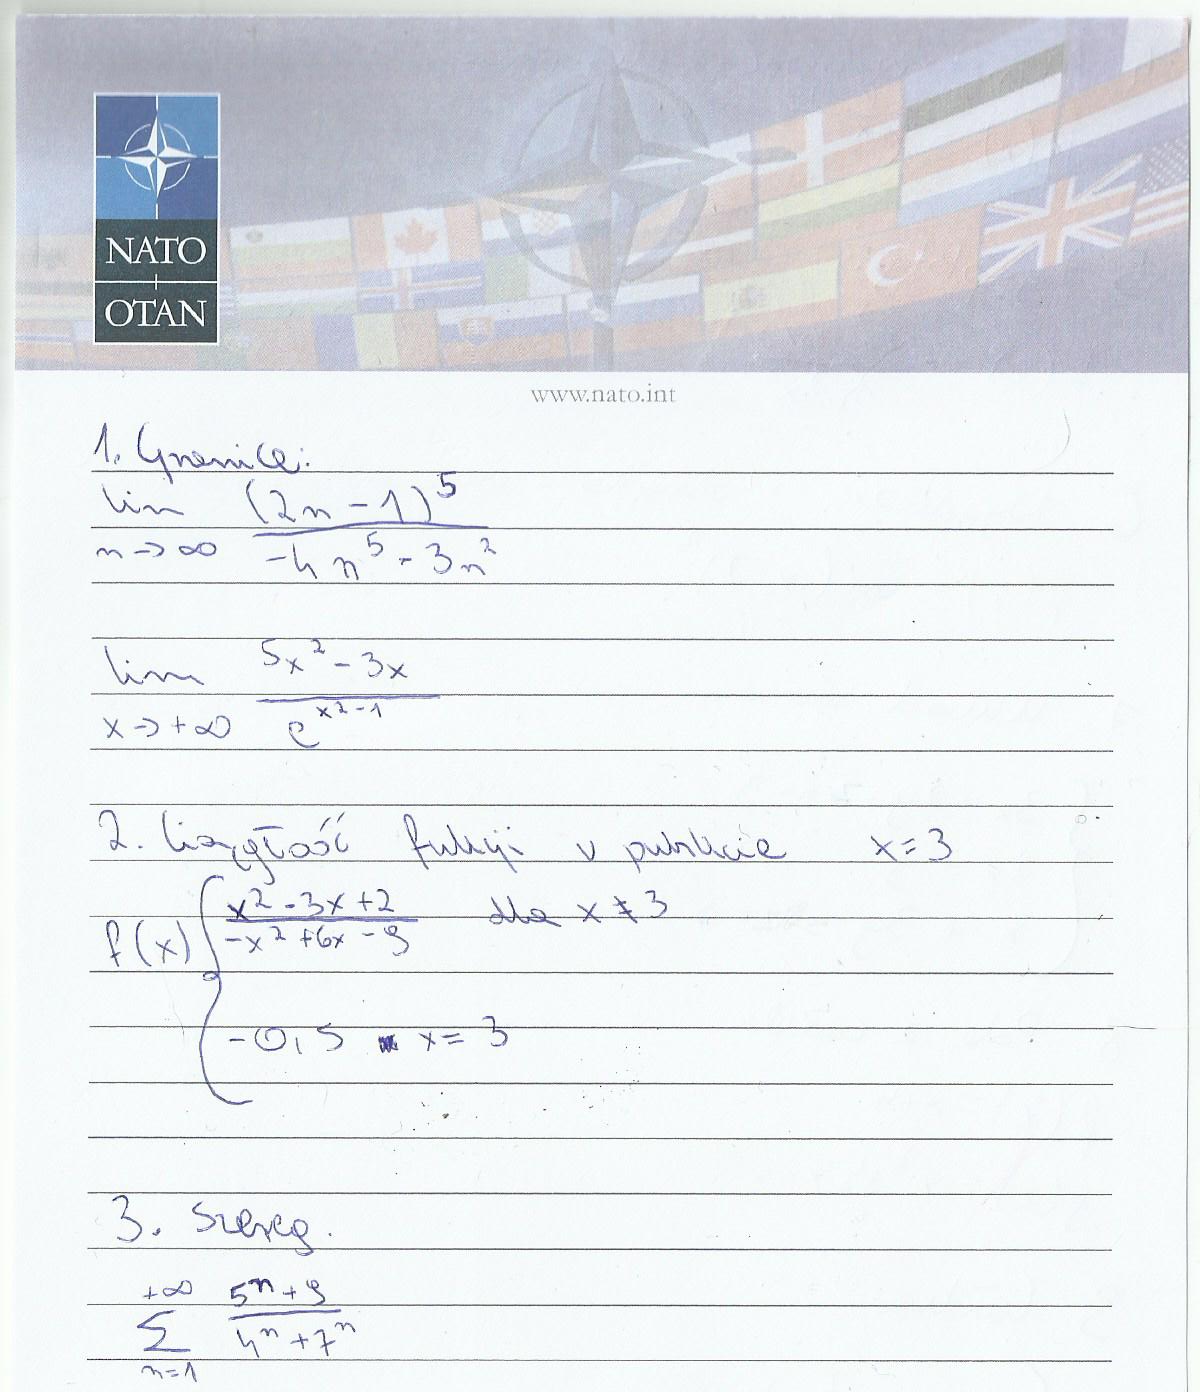 NATO
OTAN
www.nato.int
1. Granice:
lim (2n - 1)^5
n -> ∞ -4n^5 - 3n^2
lim 5x^2 - 3x
x -> +∞ e^{x^2-1}
2. Ciągłość fukcji w punkcie x = 3
x^2 - 3x + 2 dla x ≠ 3
f(x) -x^2 + 6x - 9
-0,5 x = 3
3. Szereg.
+∞ 5^n + 9
Σ 4^n + 7^n
n=1